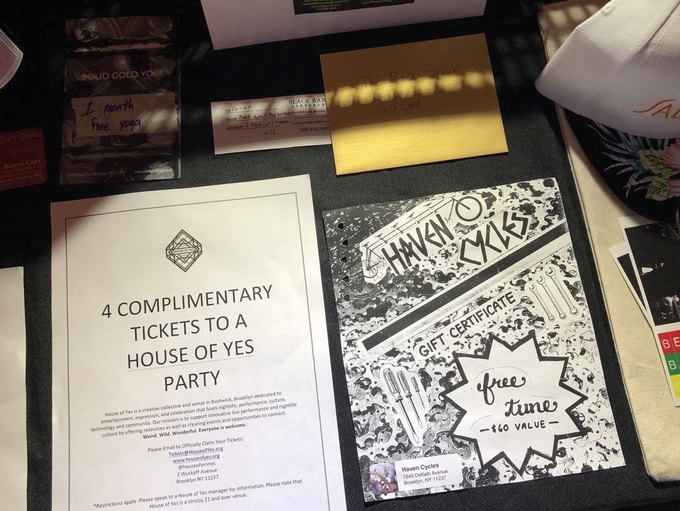 SOLID GOLD YOGA
1 month
free yoga
BLACK RAB
Gift Card
4 COMPLIMENTARY
TICKETS TO A
HOUSE OF YES
PARTY
House of Yes is a creative collective and venue in Bushwick, Brooklyn dedicated to
entertainment, expression, and celebration that fuses nightlife, performance, culture,
technology and community. Our mission is to support innovative live performance and nightlife
culture by offering resources as well as creating events and opportunities to connect.
Weird. Wild. Wonderful. Everyone is welcome.
Please Email to Officially Claim Your Tickets:
Tickets@HouseofYes.org
www.houseofyes.org
@houseofyesnyc
2 Wyckoff Avenue
Brooklyn, NY 11237
*Restrictions apply. Please speak to a House of Yes manager for information. Please note that
House of Yes is a strictly 21 and over venue.
HAVEN
CYCLES
GIFT CERTIFICATE
free
tune
-$60 VALUE-
Haven Cycles
1546 DeKalb Avenue
Brooklyn, NY 11237